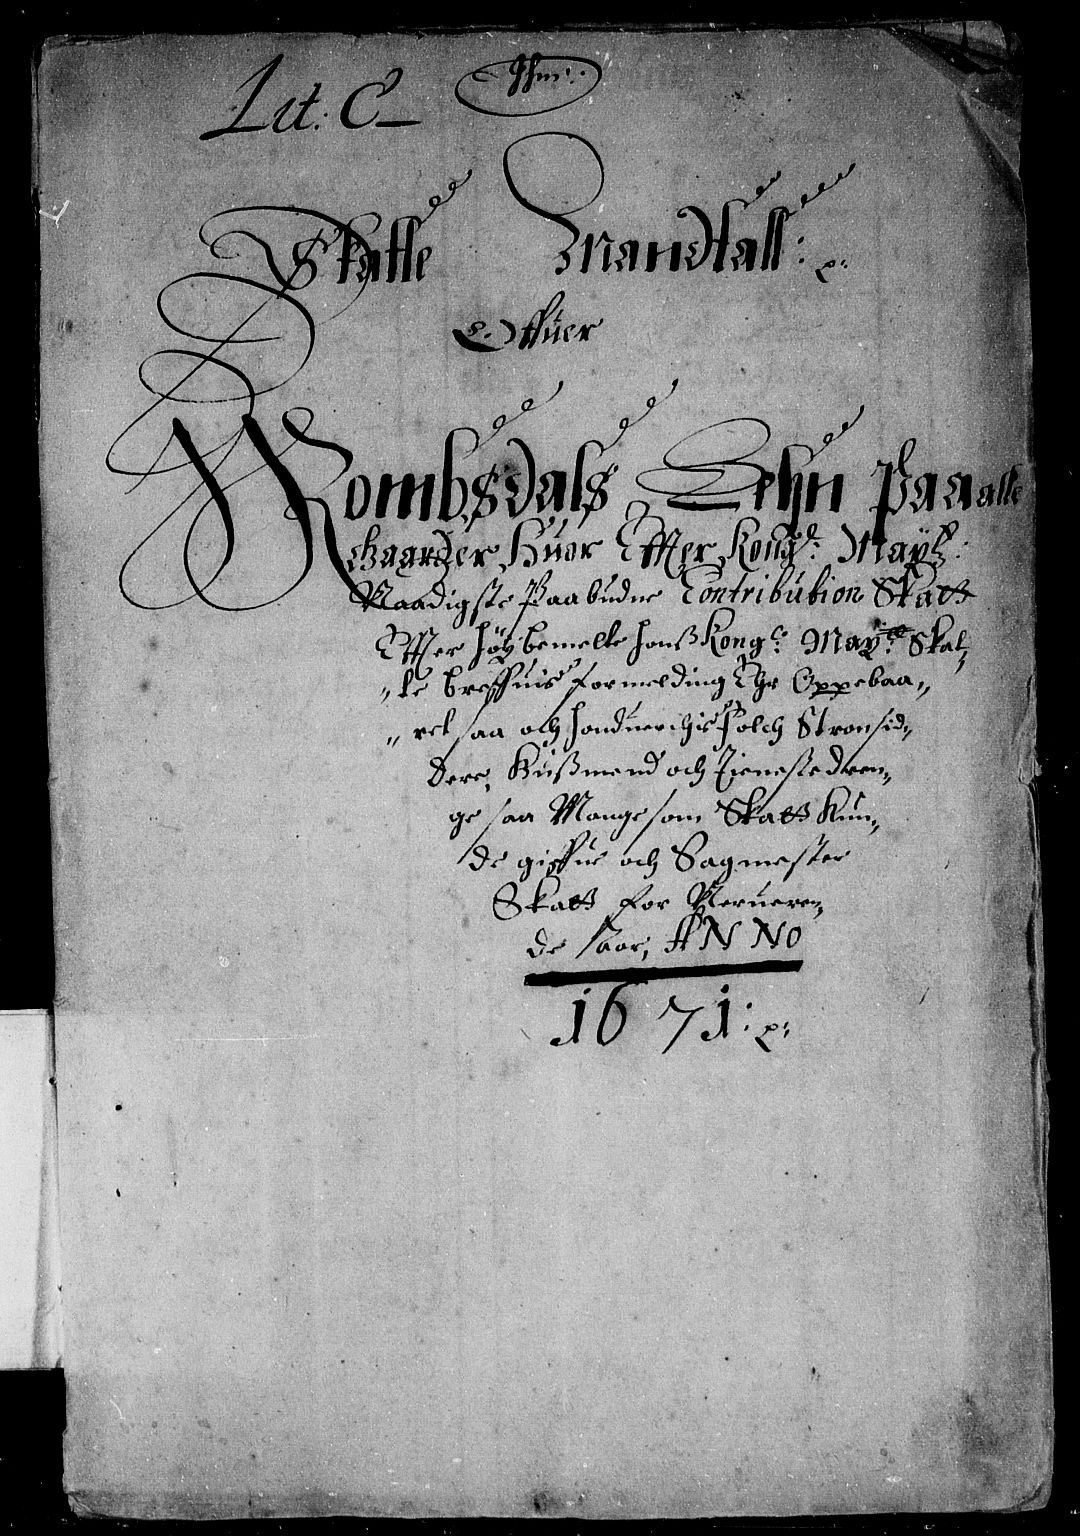 Lit: C
Skatte Mandtall:
Offuer
Rombsdals Lehn paa alle
Gaarder Huor Effter Kongl: Mayts:
Naadigste Paabudne Contribution Skatt
Effter höybemelte hans Kongl: Mayts: Skat
te breffuis formelding Er Oppebaa
ret saa och handuerchis folch Strandsid
dere, Hußmend och Tieneste dren
ge saa Mange som Skatt Kun
de giffue och Sagmester
Skatt for Nerueren
de aar, ANNO
1671: